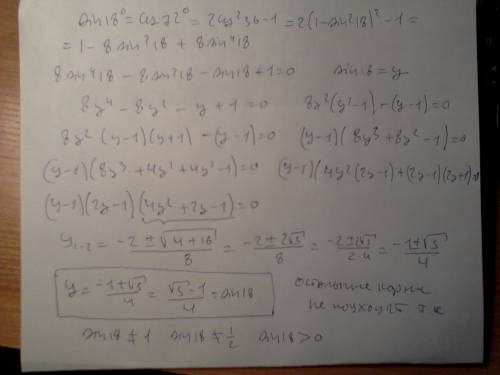 sin18° = cos72° = 2cos²36 - 1 = 2(1 - sin²18)² - 1 =
= 1 - 8sin²18 + 8sin⁴18
8sin⁴18 - 8sin²18 - sin18 + 1 = 0 sin18 = y
8y⁴ - 8y² - y + 1 = 0 8y²(y² - 1) - (y - 1) = 0
8y²(y - 1)(y + 1) - (y - 1) = 0 (y - 1)(8y³ + 8y² - 1) = 0
(y - 1)(8y³ + 4y² + 4y² - 1) = 0 (y - 1)(4y²(2y - 1) + (2y - 1)(2y + 1)) = 0
(y - 1)(2y - 1)(4y² + 2y - 1) = 0
y₁₋₂ = (-2 ± √(4 + 16))/8 = (-2 ± 2√5)/8 = (-2 ± 2√5)/(2·4) = (-1 ± √5)/4
y = (-1 + √5)/4 = (√5 - 1)/4 = sin18 остальные корни
не подходят т к
sin18 ≠ 1 sin18 ≠ 1/2 sin18 > 0